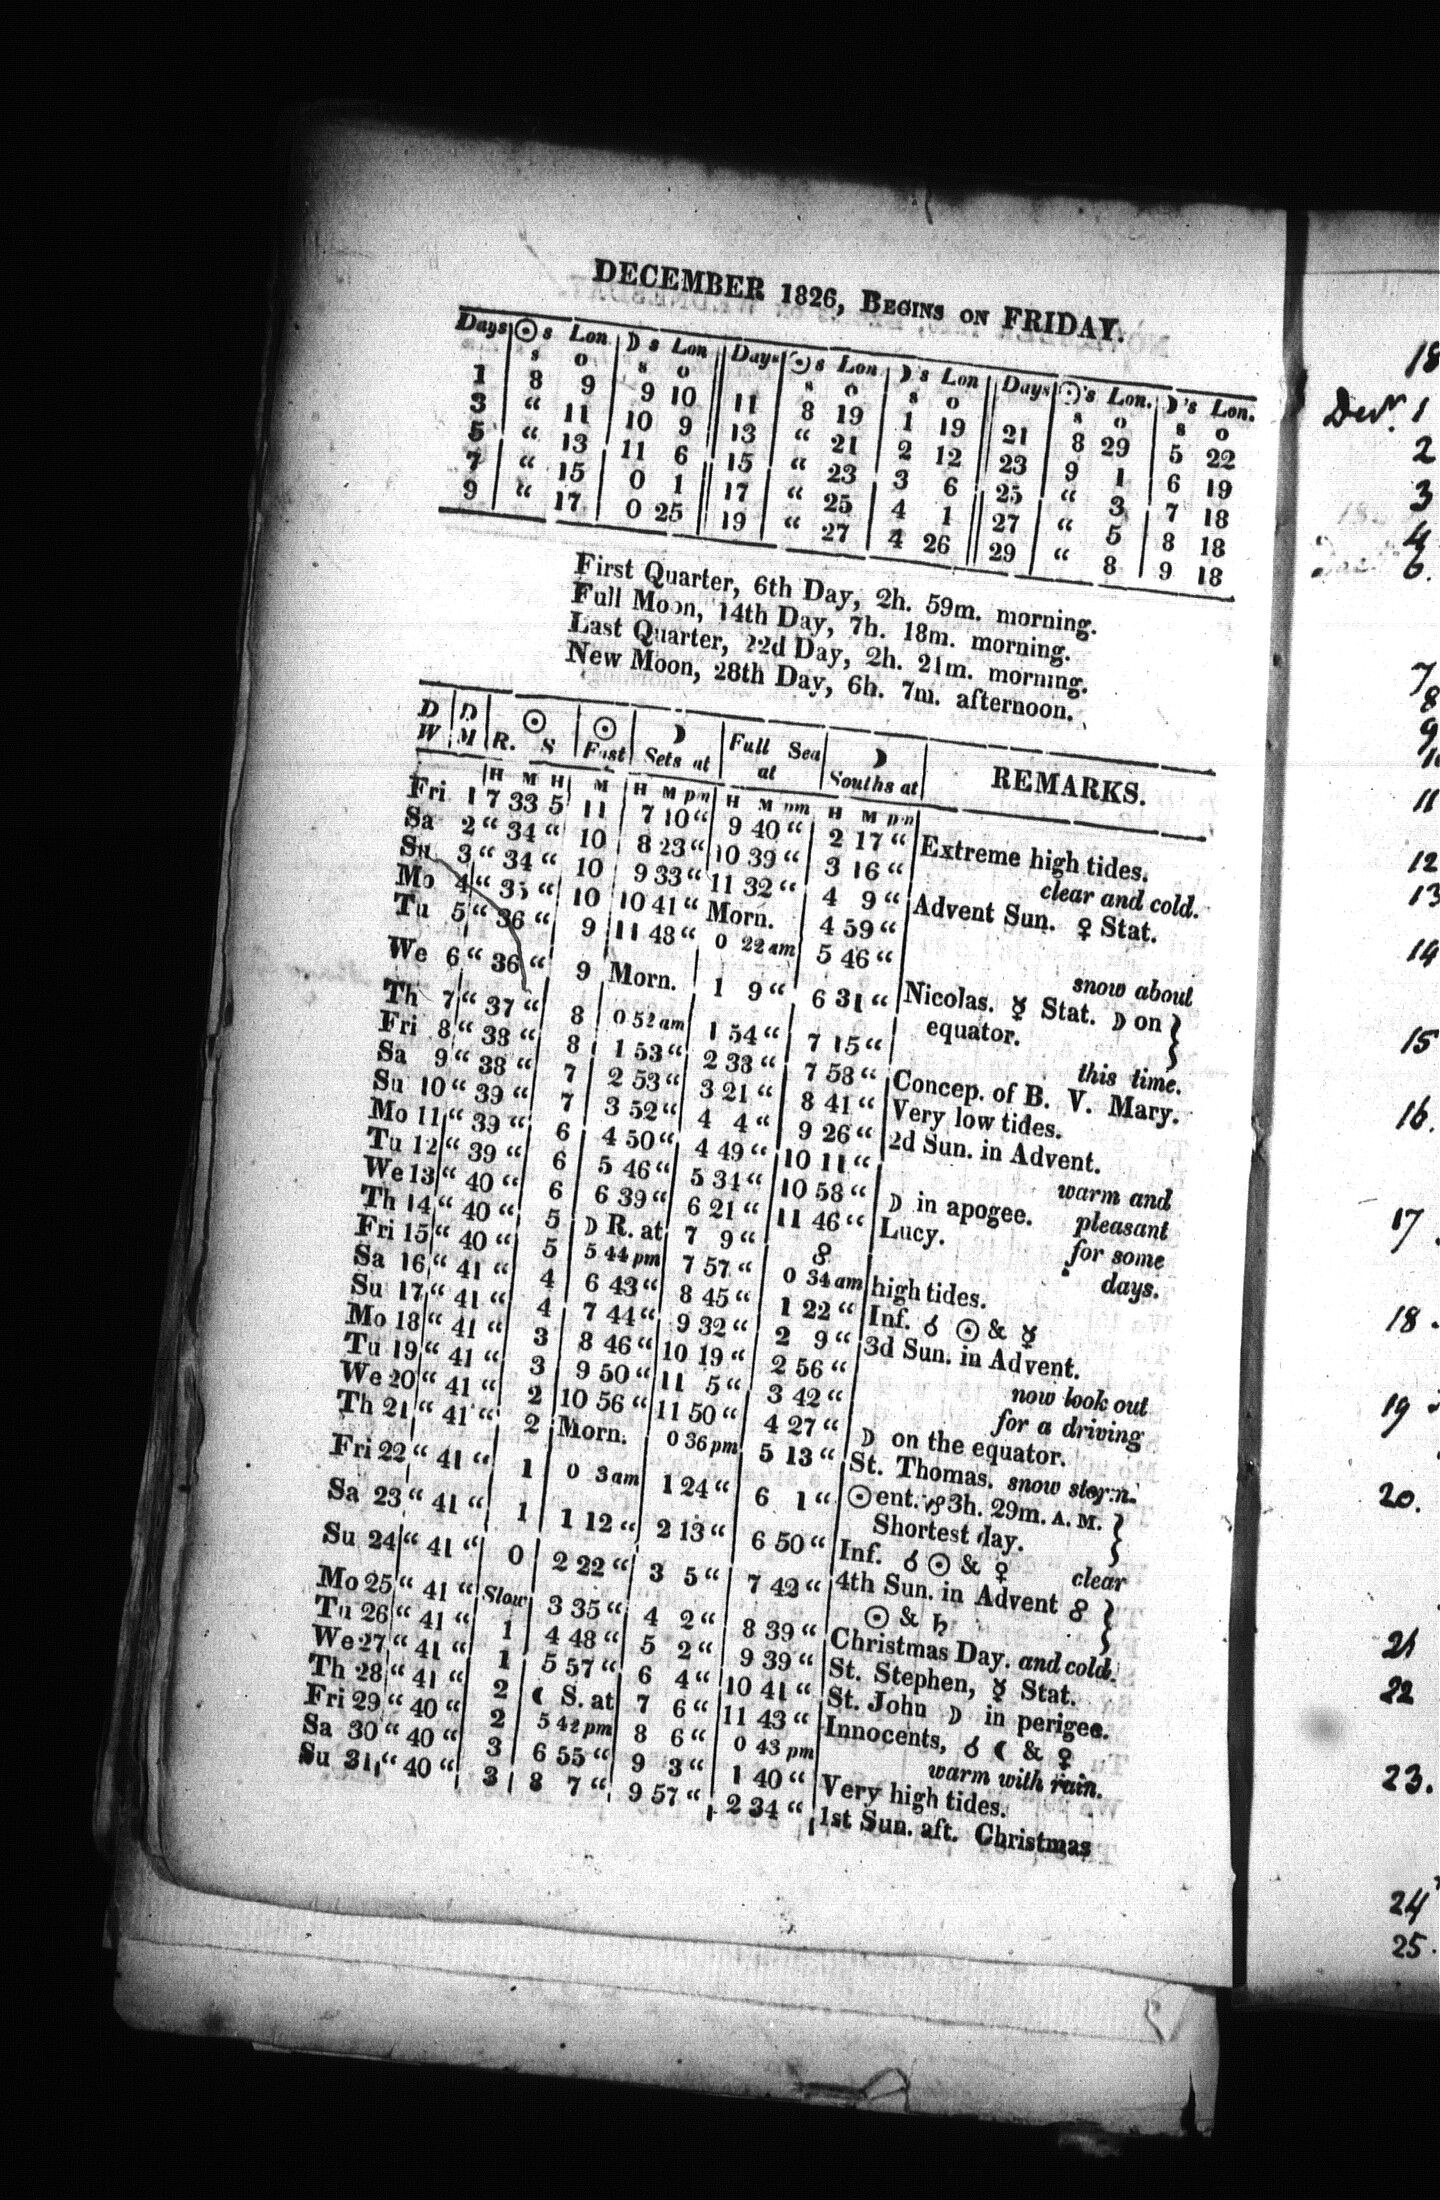 DECEMBER 1826, BEGINS ON FRIDAY.
Days ☉s Lon ☽s Lon Days ☉s Lon ☽'s Lon Days ☉'s Lon. ☽'s Lon.
s o s o s o s o s o s o
1 8 9 9 10 11 8 19 1 19 21 8 29 5 22
3 “ 11 10 9 13 “ 21 2 12 23 9 1 6 19
5 “ 13 11 6 15 “ 23 3 6 25 “ 3 7 18
7 “ 15 0 1 17 “ 25 4 1 27 “ 5 8 18
9 “ 17 0 25 19 “ 27 4 26 29 “ 8 9 18
First Quarter, 6th Day, 2h. 59m. morning.
Full Moon, 14th Day, 7h. 18m. morning.
Last Quarter, 22d Day, 2h. 21m. morning.
New Moon, 28th Day, 6h. 7m. afternoon.
D D ☉ ☉ ☽ Full Sea ☽ REMARKS.
W M R. S Fast Sets at at Souths at
H M H M H M pm H M pm H M pm
Fri 1 7 33 5 11 7 10 “ 9 40 “ 2 17 “ Extreme high tides.
Sa 2 “ 34 “ 10 8 23 “ 10 39 “ 3 16 “ clear and cold.
Su 3 “ 34 “ 10 9 33 “ 11 32 “ 4 9 “ Advent Sun. ♀ Stat.
Mo 4 “ 35 “ 10 10 41 “ Morn. 4 59 “
Tu 5 “ 36 “ 9 11 48 “ 0 22 am 5 46 “ snow about
We 6 “ 36 “ 9 Morn. 1 9 “ 6 31 “ Nicolas. ☿ Stat. ☽ on }
equator.
Th 7 “ 37 “ 8 0 52 am 1 54 “ 7 15 “ this time.
Fri 8 “ 38 “ 8 1 53 “ 2 38 “ 7 58 “ Concep. of B. V. Mary.
Sa 9 “ 38 “ 7 2 53 “ 3 21 “ 8 41 “ Very low tides.
Su 10 “ 39 “ 7 3 52 “ 4 4 “ 9 26 “ 2d Sun. in Advent.
Mo 11 “ 39 “ 6 4 50 “ 4 49 “ 10 11 “ warm and
Tu 12 “ 39 “ 6 5 46 “ 5 34 “ 10 58 “ ☽ in apogee. pleasant
We 13 “ 40 “ 6 6 39 “ 6 21 “ 11 46 “ Lucy. for some
Th 14 “ 40 “ 5 ☽ R. at 7 9 “ ☍ days.
Fri 15 “ 40 “ 5 5 44 pm 7 57 “ 0 34 am high tides.
Sa 16 “ 41 “ 4 6 43 “ 8 45 “ 1 22 “ Inf. ☌ ☉ & ☿
Su 17 “ 41 “ 4 7 44 “ 9 32 “ 2 9 “ 3d Sun. in Advent.
Mo 18 “ 41 “ 3 8 46 “ 10 19 “ 2 56 “ now look out
Tu 19 “ 41 “ 3 9 50 “ 11 5 “ 3 42 “ for a driving
We 20 “ 41 “ 2 10 56 “ 11 50 “ 4 27 “ ☽ on the equator.
Th 21 “ 41 “ 2 Morn. 0 36 pm 5 13 “ St. Thomas. snow storm.
Fri 22 “ 41 “ 1 0 3 am 1 24 “ 6 1 “ ☉ ent. ♑ 3h. 29m. A. M. }
Shortest day.
Sa 23 “ 41 “ 1 1 12 “ 2 13 “ 6 50 “ Inf. ☌ ☉ & ♀ clear
Su 24 “ 41 “ 0 2 22 “ 3 5 “ 7 42 “ 4th Sun. in Advent ☍ }
Slow ☉ & ♄
Mo 25 “ 41 “ 1 3 35 “ 4 2 “ 8 39 “ Christmas Day. and cold.
Tu 26 “ 41 “ 1 4 48 “ 5 2 “ 9 39 “ St. Stephen, ☿ Stat.
We 27 “ 41 “ 2 5 57 “ 6 4 “ 10 41 “ St. John ☽ in perigee.
Th 28 “ 41 “ 2 ☾ S. at 7 6 “ 11 43 “ Innocents, ☌ ☾ & ♀
Fri 29 “ 40 “ 3 5 42 pm 8 6 “ 0 43 pm warm with rain.
Sa 30 “ 40 “ 3 6 55 “ 9 3 “ 1 40 “ Very high tides.
Su 31 “ 40 “ 3 8 7 “ 9 57 “ 2 34 “ 1st Sun. aft. Christmas
18
Decr. 1
2
3
4
6.
7
8
9
11
12
13
14
15
16.
17.
18.
19
20.
21
22
23.
24
25.